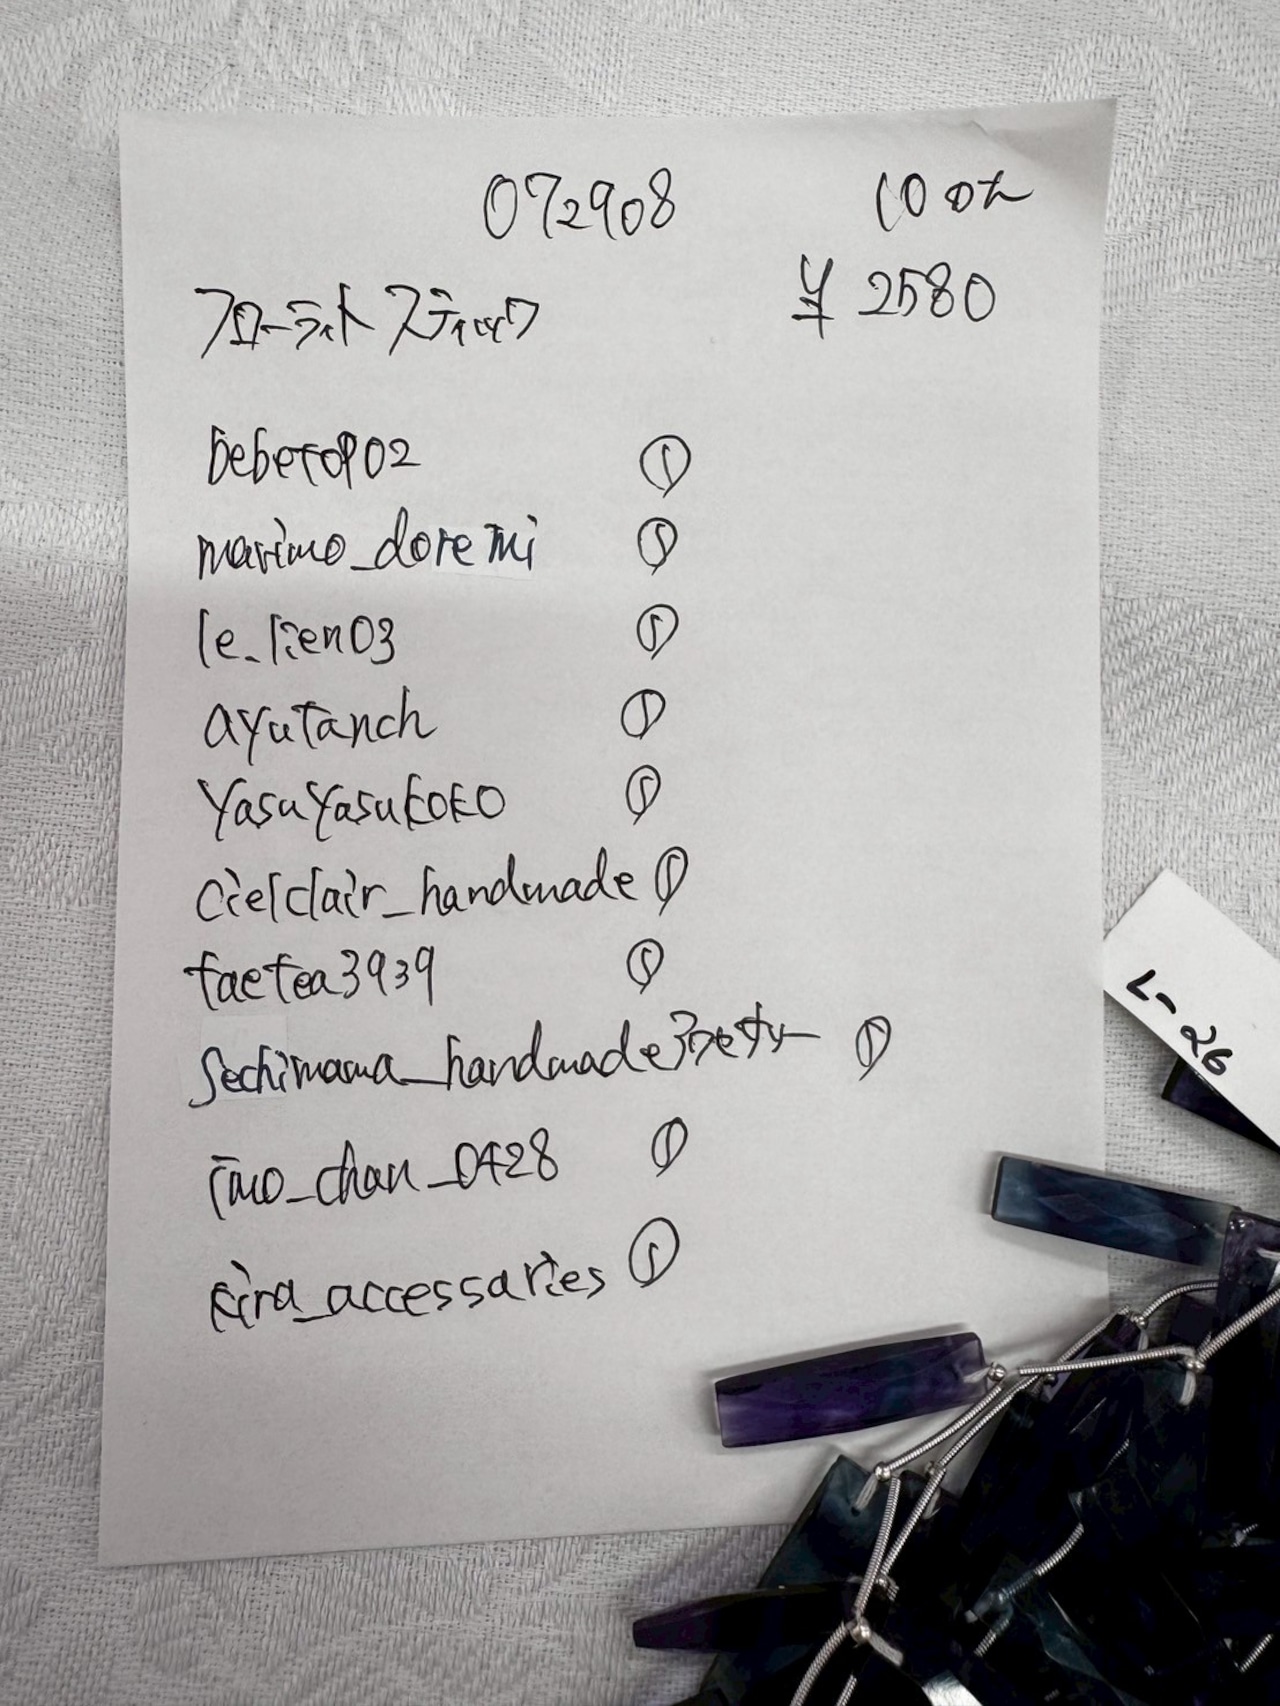 072908
¥ 2580
フローライト スティック
marimo_doremi ①
le_lien03 ①
ayutanch ①
yasuyasukoko ①
cielclair_handmade ①
taetea3939 ①
Sechimama_handmade ①
imo_chan_0428 ①
kira_accessaries ①
L-26